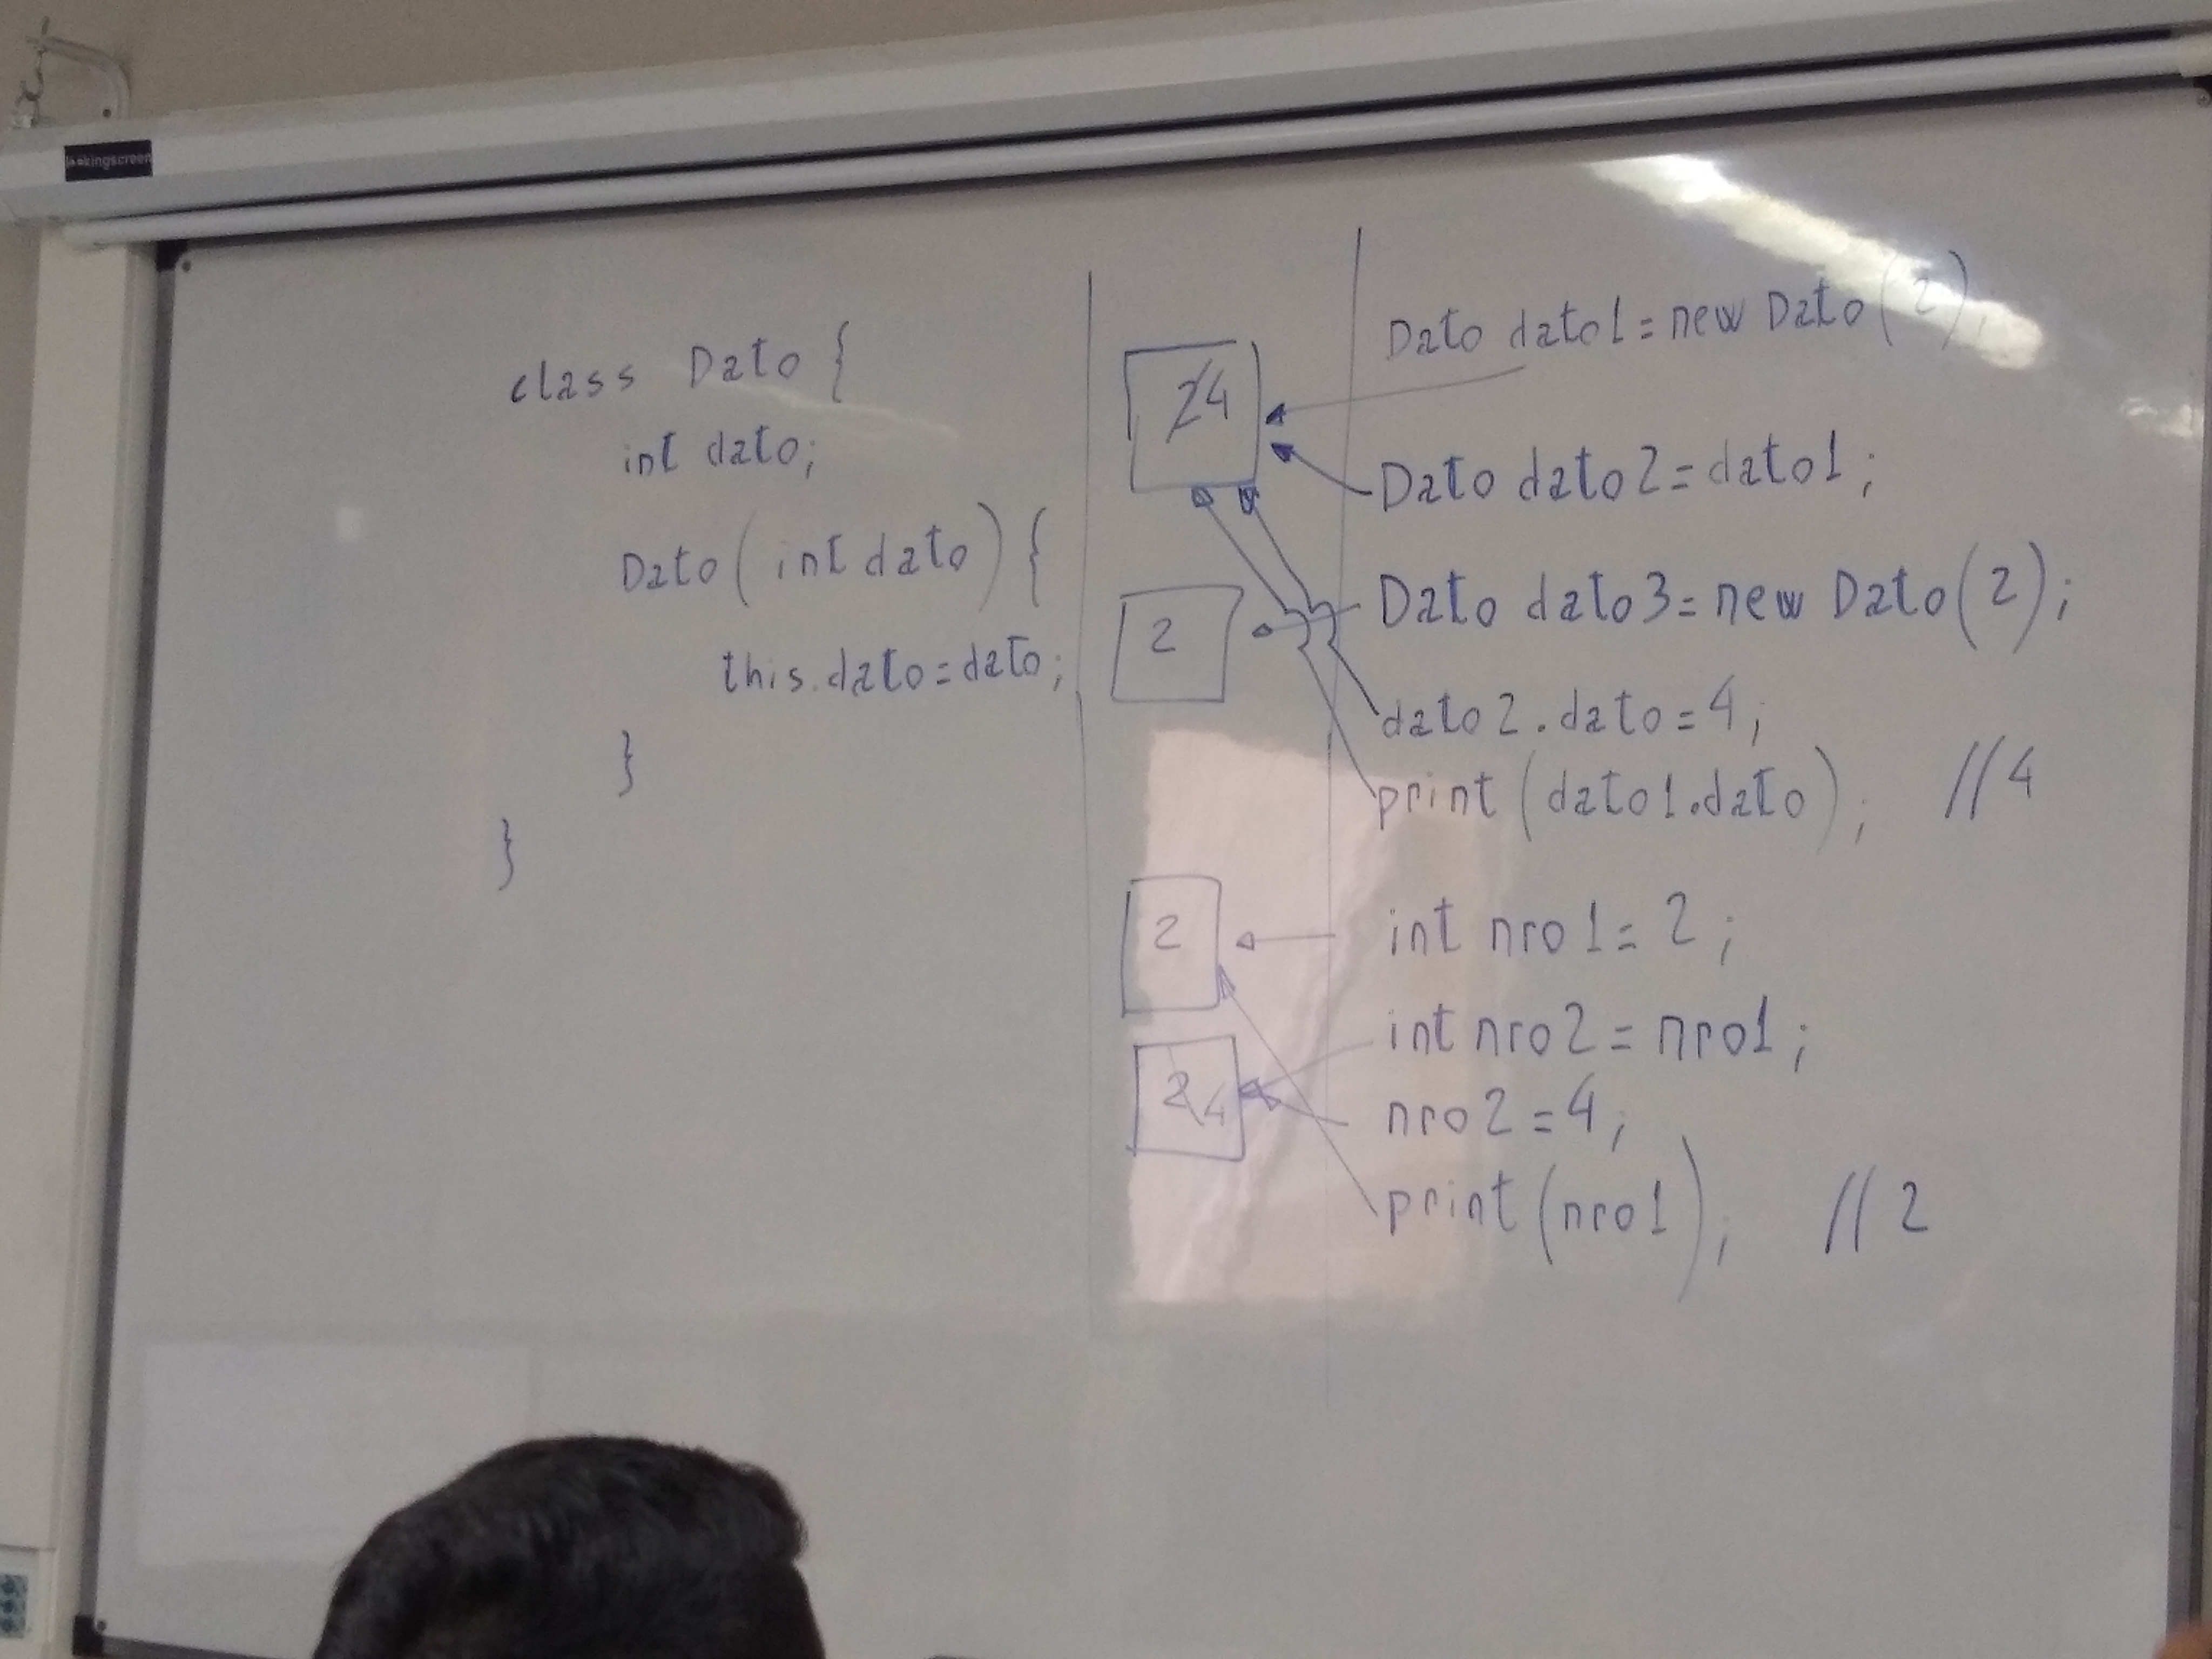 lookingscreen
class Dato {
int dato;
Dato (int dato) {
this.dato=dato;
}
}
24
2
2
24
Dato dato1=new Dato(2);
Dato dato2=dato1;
Dato dato3=new Dato(2);
dato2.dato=4;
print(dato1.dato); //4
int nro1=2;
int nro2=nro1;
nro2=4;
print(nro1); //2